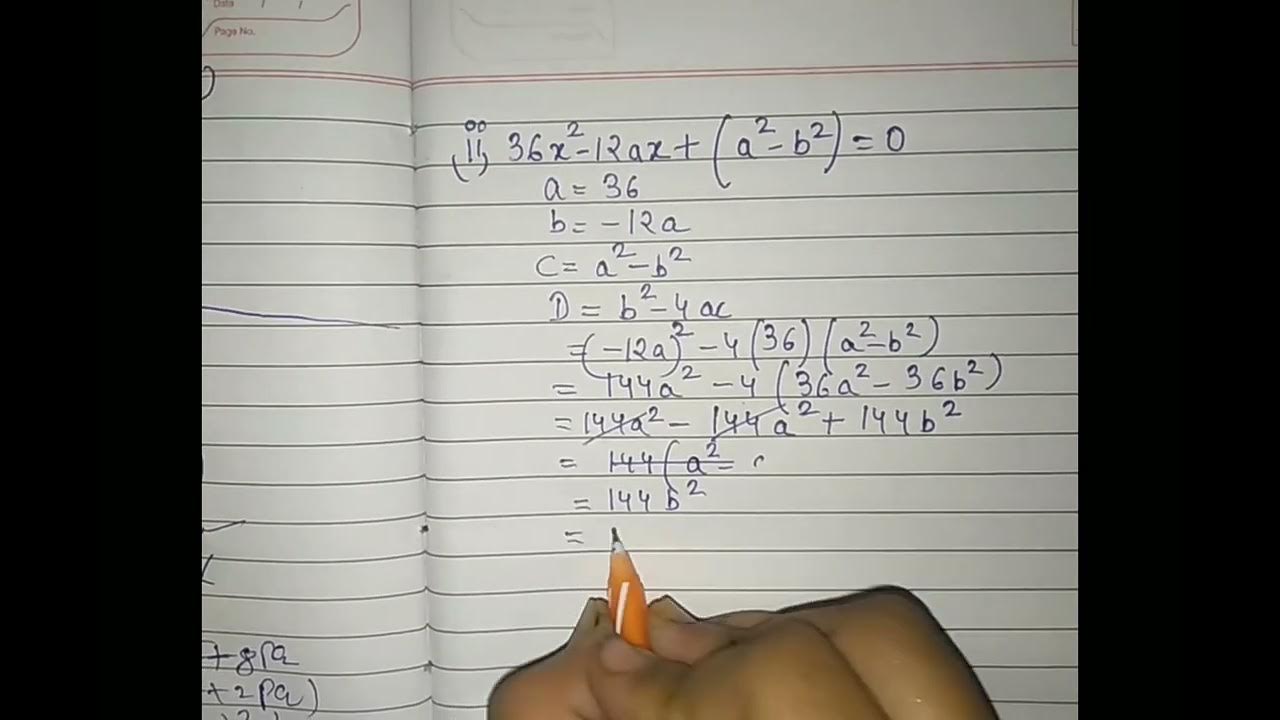 Data / /
Page No.
(ii) 36x² - 12ax + (a² - b²) = 0
a = 36
b = -12a
C = a² - b²
D = b² - 4ac
= (-12a)² - 4(36)(a² - b²)
= 144a² - 4(36a² - 36b²)
= 144a² - 144a² + 144b²
= 144(a² =
= 144b²
=
+ 8pq
+ 2pq)